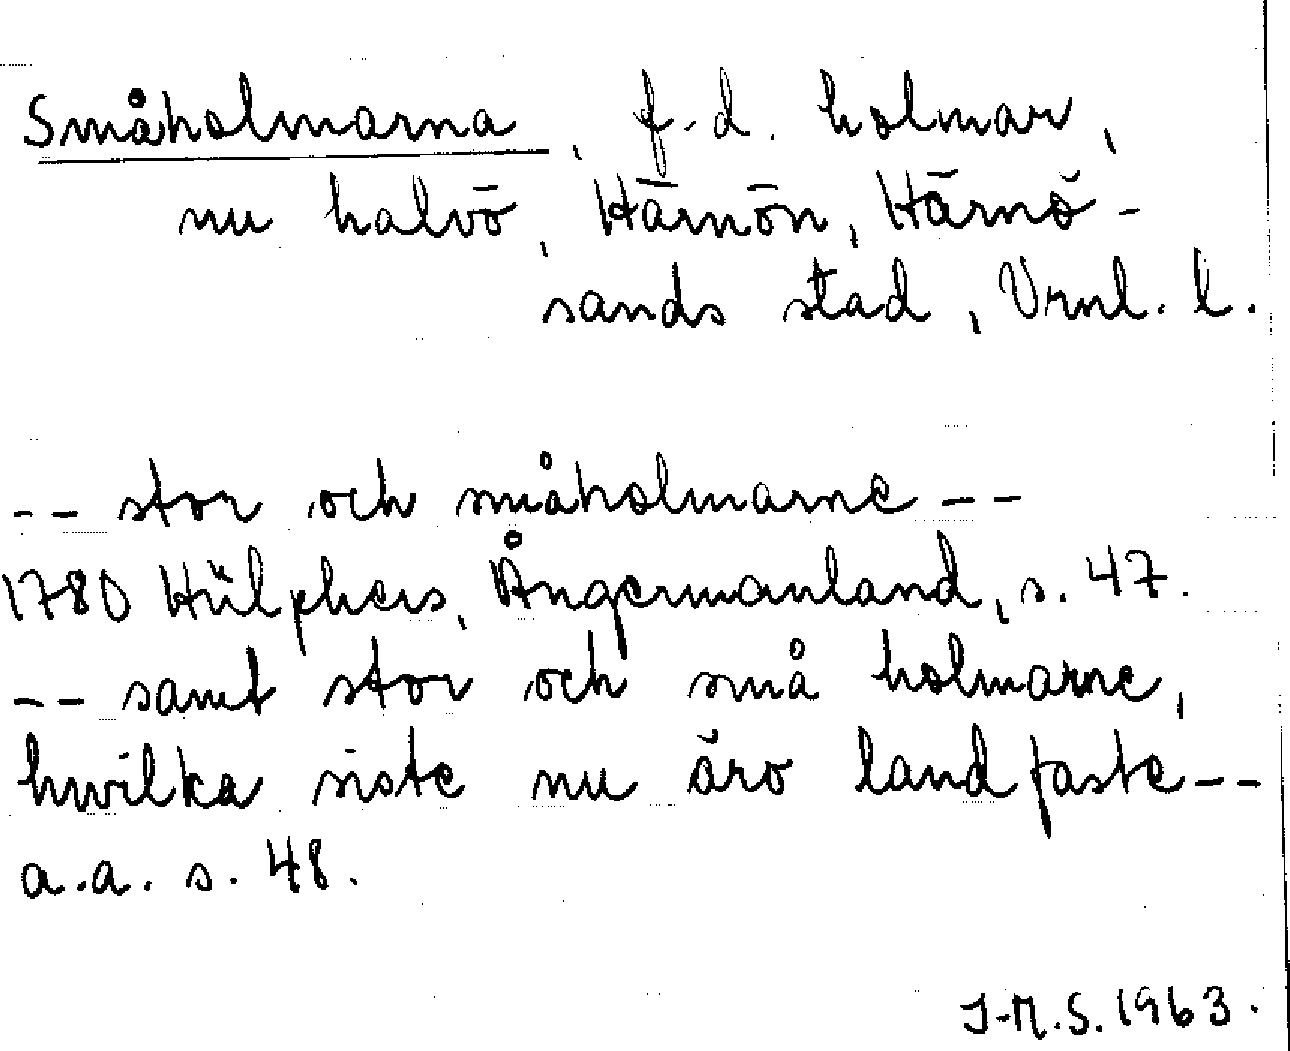 Småholmarna, f.d. holmar,
nu halvö, Härnön, Härnö-
sands stad, Vrnl. l.
-- stor och småholmarne --
1780 Hülphers, Ångermanland, s. 47.
-- samt stor och små holmarne,
hwilka siste nu äro landfaste --
a.a. s. 48.
J-M.S. 1963.